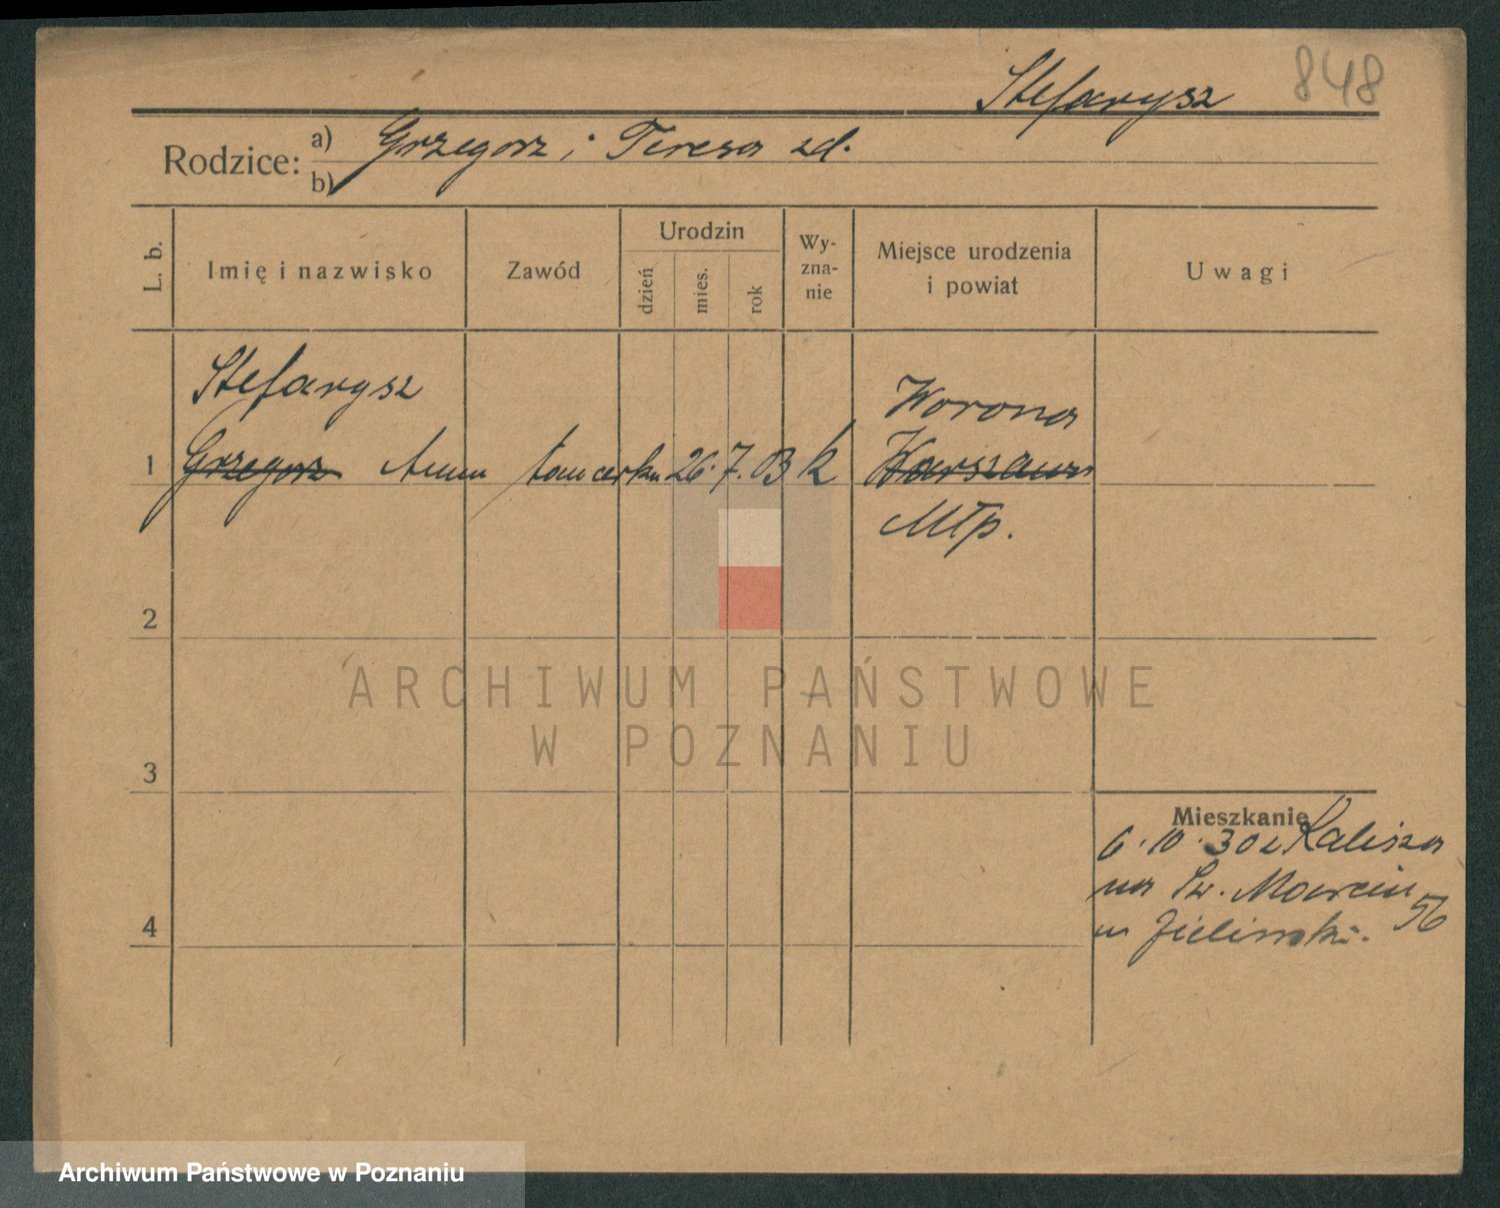 848
Stefarysz
Rodzice: a) Grzegorz i Teresa zd.
b)
L. b. Imię i nazwisko Zawód Urodzin dzień mies. rok Wyznanie Miejsce urodzenia i powiat Uwagi
Stefarysz Worona
1 Grzegorz Anna tancerka 26. 7. 03 k Warszawa
Młp.
2
ARCHIWUM PAŃSTWOWE
W POZNANIU
3
Mieszkanie
6.10.30 z Kalisza
na Św. Marcin 56
u Zielinski.
4
Archiwum Państwowe w Poznaniu